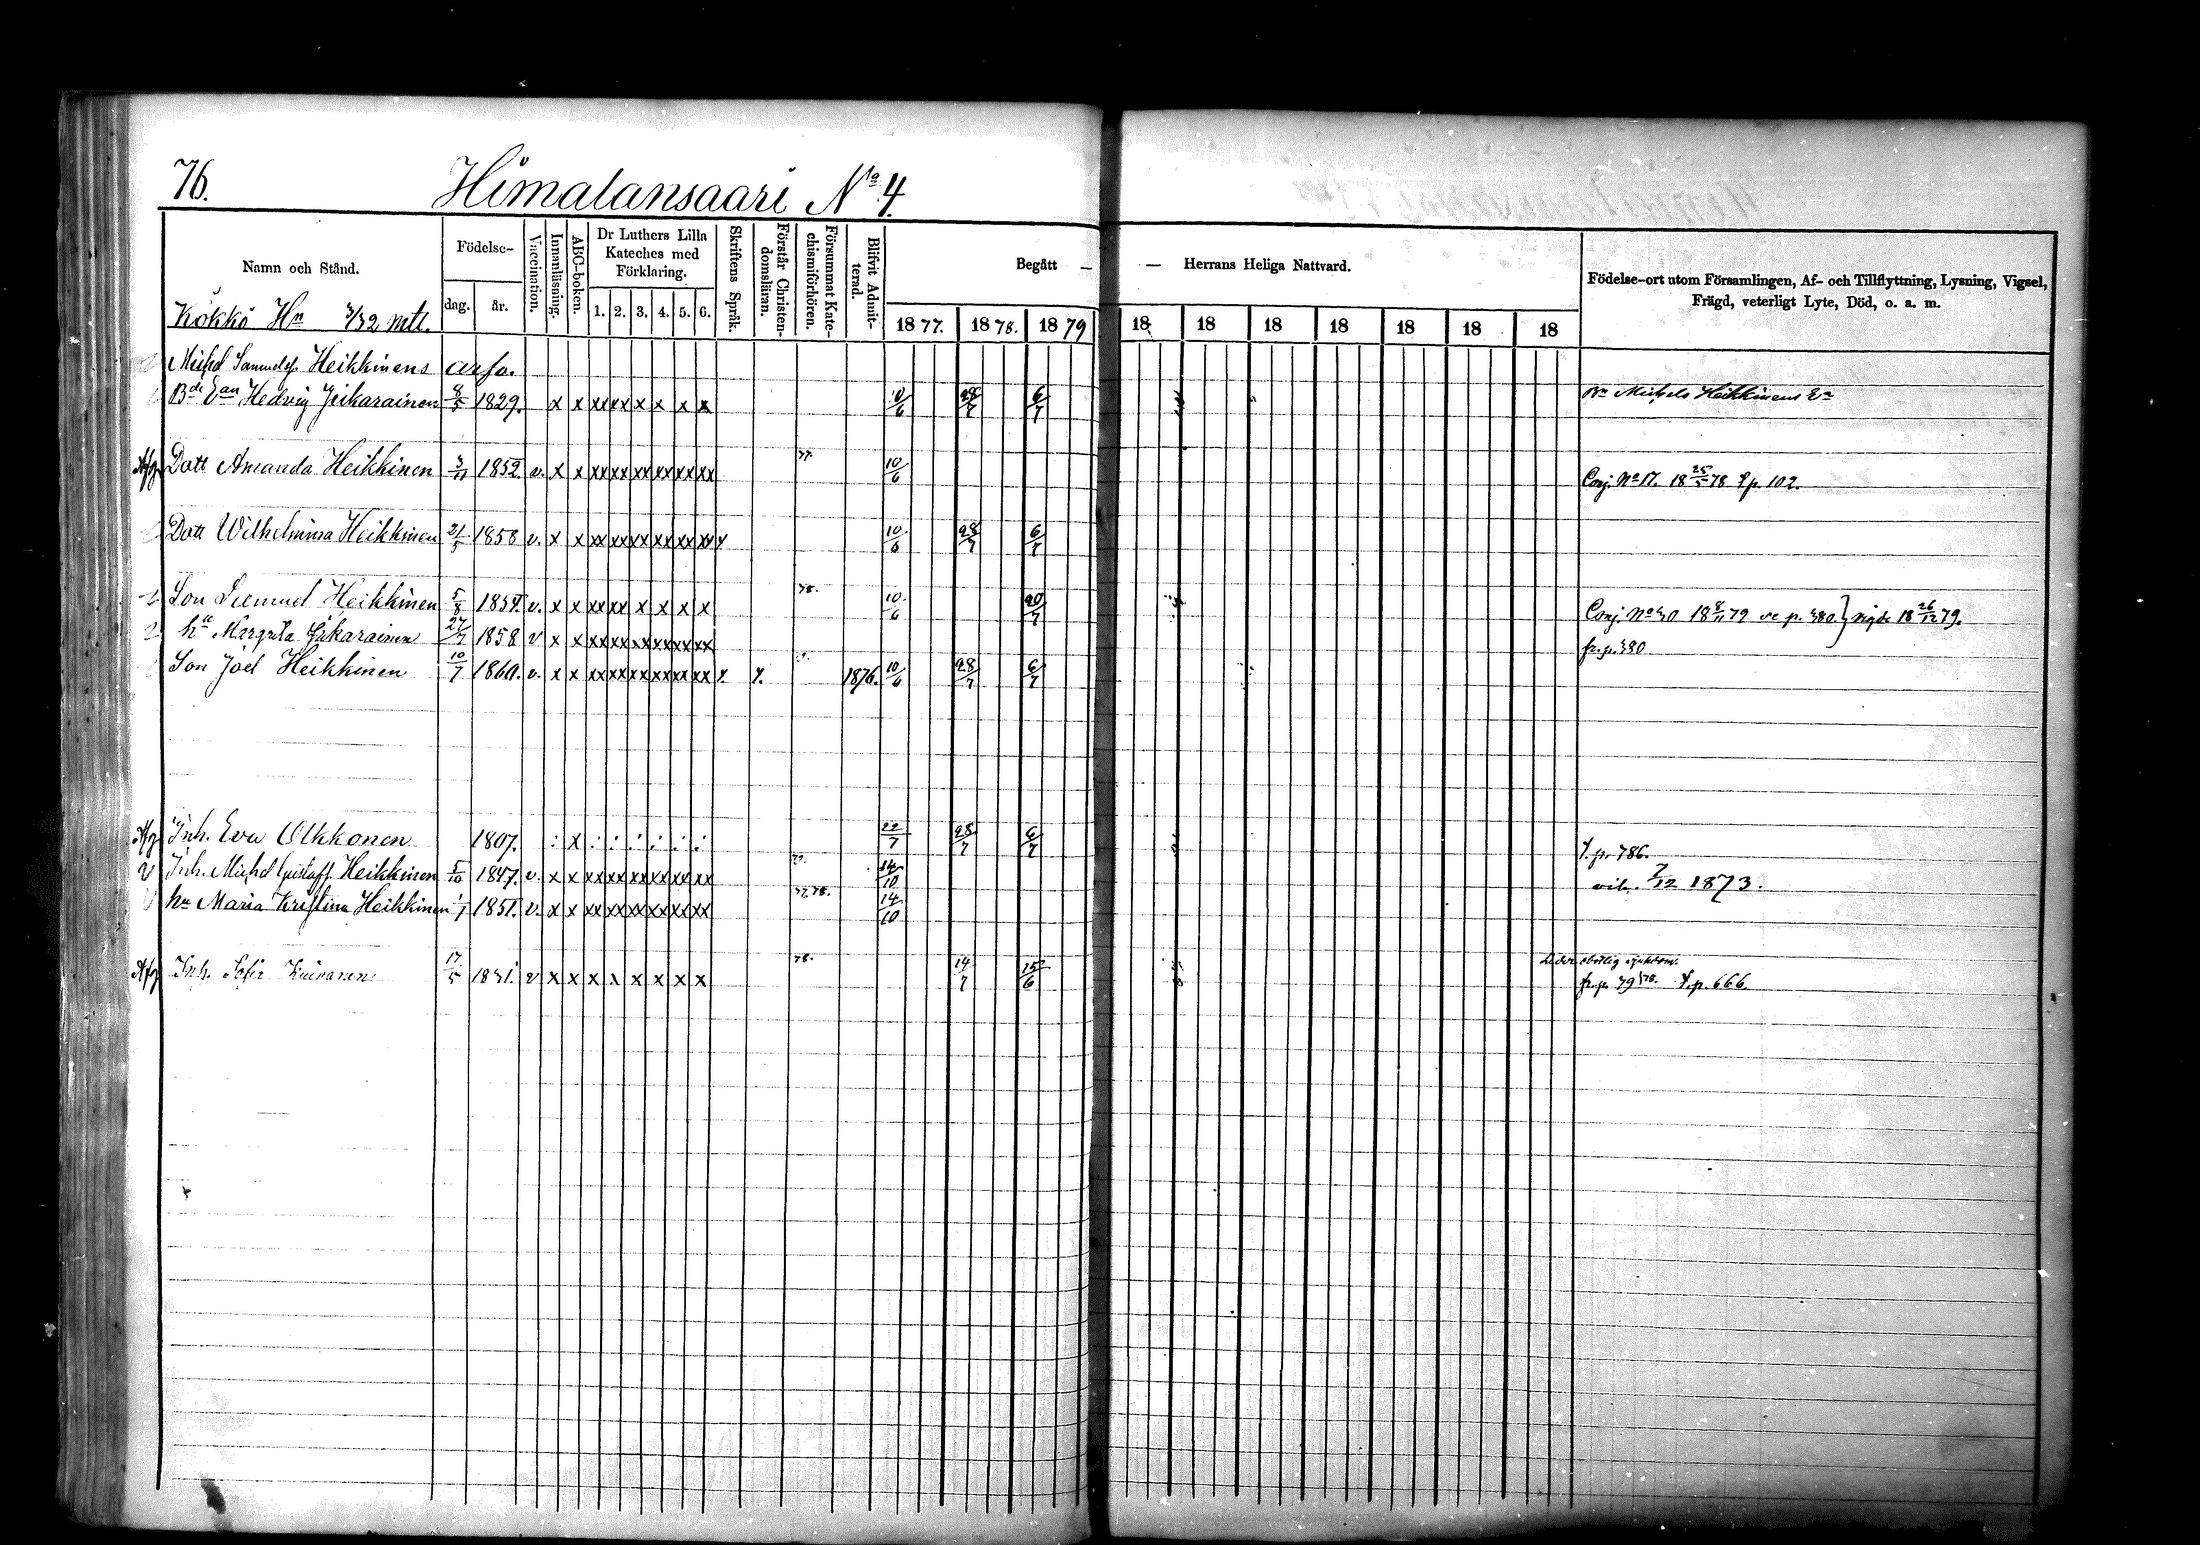 76.
Himalansaari No 4.
Namn och Stånd.
Födelse-
dag.
år.
Vaccination.
Innanläsning.
ABC-boken.
Dr Luthers Lilla
Kateches med
Förklaring.
1. 2. 3. 4. 5. 6.
Skriftens Språk.
Förstår Christen-
domsläran.
Försummat Kate-
chismiförhören.
Blifvit Admit-
terad.
Begått — — Herrans Heliga Nattvard.
1877. 1878. 1879 18 18 18 18 18 18 18
Födelse-ort utom Församlingen, Af- och Tillflyttning, Lysning, Vigsel,
Frägd, veterligt Lyte, Död, o. a. m.
Kökkö Hn 3/32 mtl.
Michel Samuelss. Heikkinens arfv.
Bde Ean Hedvig 8/5 1829. x x xx xx x x x x 10/6 28/7 6/7 Michels Heikkinens Ea
Afg Dott Amanda Heikkinen 3/11 1852. v. x x xx xx xx xx xx xx 77. 10/6 Conj. No 17. 18 25/5 78 p. 102.
Dott Wilhelmina Heikkinen 21/5 1858 v. x x xx xx xx xx xx xx 10/6 28/7 6/7
Son Samuel Heikkinen 5/8 v. x x xx xx x x x x 78. 10/6 20/7 Conj. 18 8/11 79 p. 380. } vigde 18 26/12 79.
hu Margreta 27/7 1858 v x x xx xx xx xx xx xx fr. p. 380
Son Joel Heikkinen 10/7 1860. v. x x xx xx xx xx xx xx 1876. 10/6 28/7 6/7
Afg Inh. Eva Olkkonen 1807. : x : : : : : : 22/7 28/7 6/7 p. 786.
v Inh. Michel Gustaff Heikkinen 5/10 1847. v. x x xx xx xx xx xx xx 14/10 vih. 7/12 1873.
v hu Maria Kristina Heikkinen 1/7 1851. v. x x xx xx xx xx xx xx 77. 78. 14/10
Afg Inh. Sofia 17/5 v x x x x x x x x 78. 14/7 15/6 Lider
fr. p. 79 78. p. 666.